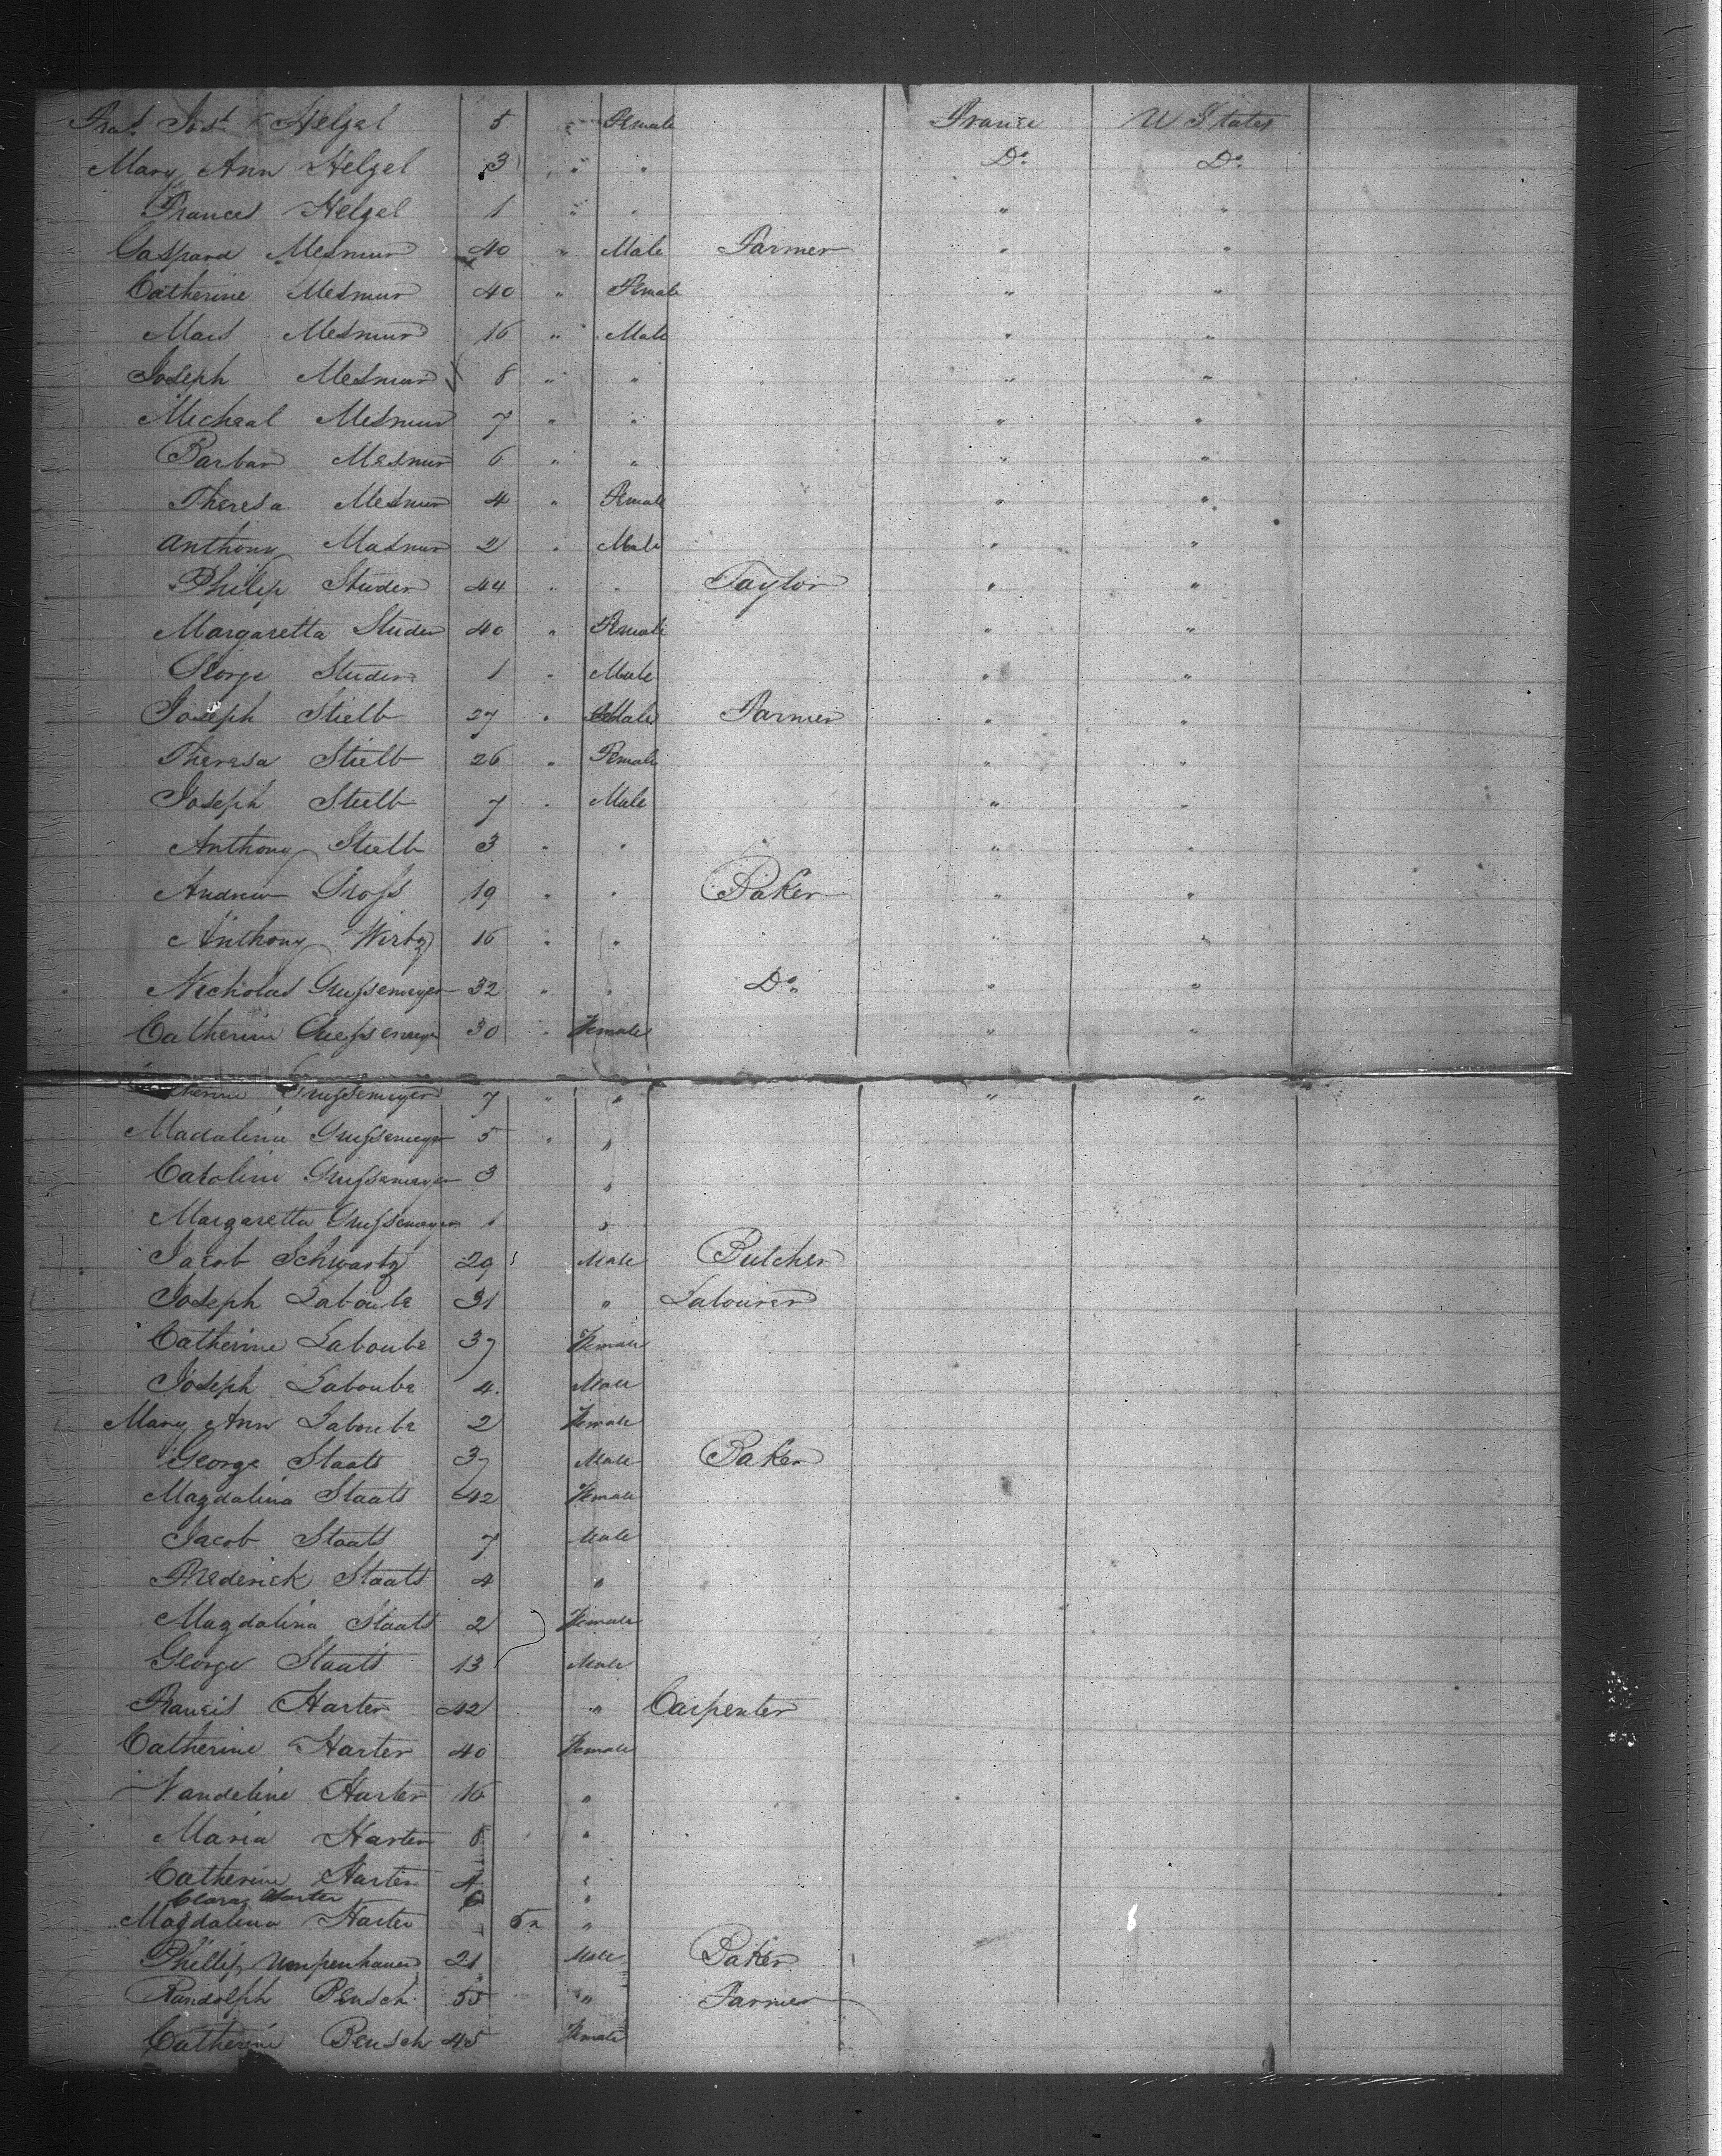 Fra.s Jos.t Helgel 5 " Female France U States
Mary Ann Helgel 3 " " Do. Do.
Frances Helgel 1 " " " "
Gaspard Mesmur 40 " Male Farmer " "
Catherine Mesmur 40 " Female " "
Mesmur 16 " Male " "
Joseph Mesmur 8 " " " "
Micheal Mesmur 7 " " " "
Barbar Mesmur 6 " " " "
Theresa Mesmur 4 " Female " "
Anthony Mesmur 2 " Male " "
Philip Studer 44 " " Taylor " "
Margaretta Studer 40 " Female " "
George Studer 1 " Male " "
Joseph Stielb 27 " Male Farmer " "
Theresa Stielb 26 " Female " "
Joseph Stielb 7 " Male " "
Anthony Stielb 3 " " " "
Andrew Gross 19 " " Baker " "
Anthony Wirtz 16 " " " "
Nicholas Grussemeyer 32 " " Do. " "
Catherine Grussemeyer 30 " Female " "
Grussemeyer 7 " " " "
Madalina Grussemeyer 5 " "
Caroline Grussemeyer 3 "
Margaretta Grussemeyer 1 "
Jacob Schwartz 29 Male Butcher
Joseph Laboube 31 " Labourer
Catherine Laboube 37 Female
Joseph Laboube 4 Male
Mary Ann Laboube 2 Female
George Staats 37 Male Baker
Magdalina Staats 42 Female
Jacob Staats 7 Male
Frederick Staats 4 "
Magdalina Staats 2 Female
George Staats 13 Male
Francis Harter 42 " Carpenter
Catherine Harter 40 Female
Vandeline Harter 16 "
Maria Harter 8 "
Catherine Harter 4 "
Clara Harter 6 "
Magdalina Harter "
Phillip Umpenhauer 21 Male Baker
Randolph Bensch 55 " Farmer
Catherine Bensch 45 Female